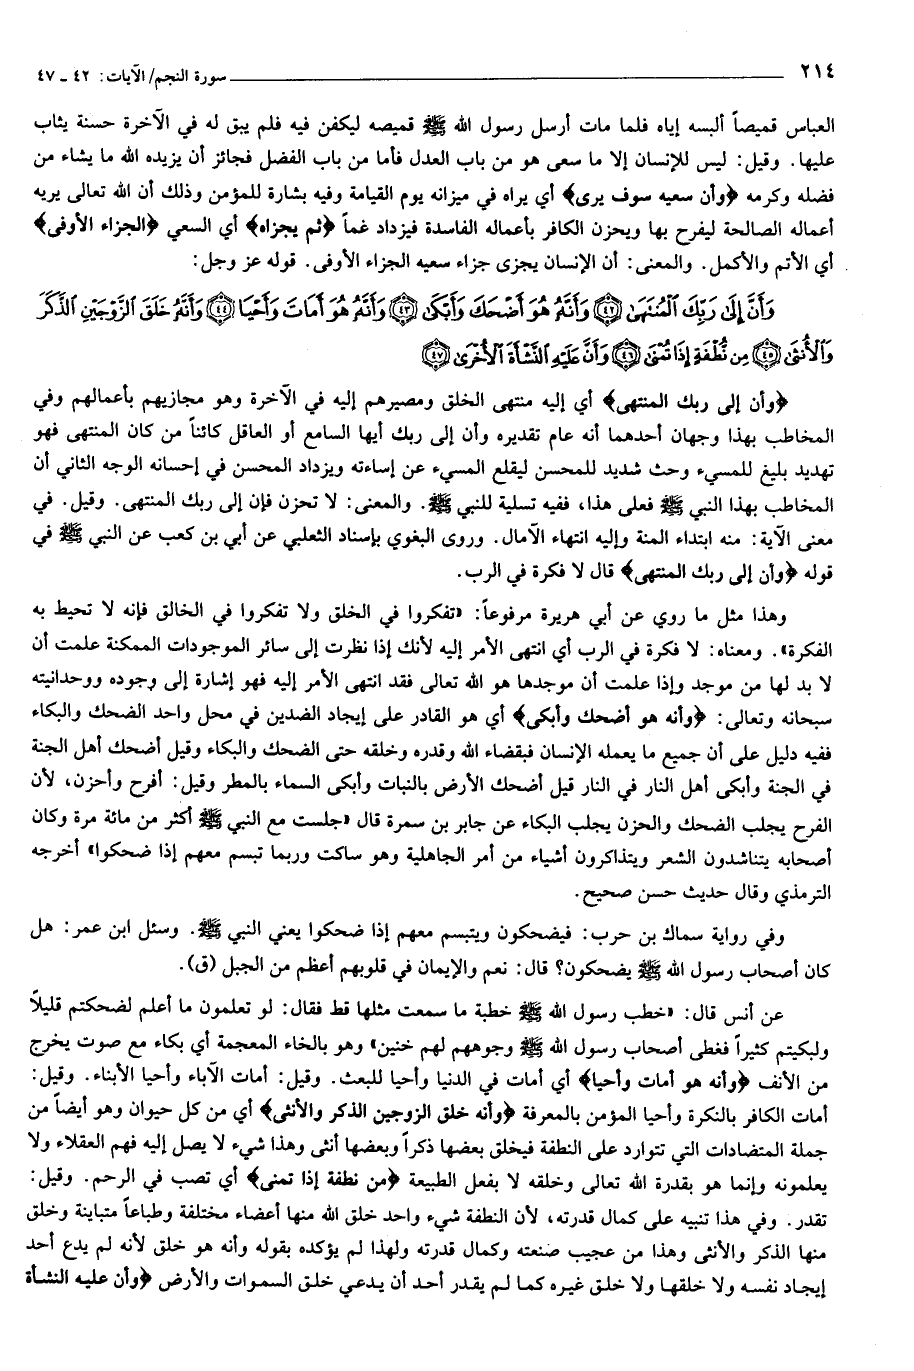 ٢١٤ سورة النجم/ الآيات: ٤٢ ـ ٤٧
العباس قميصاً ألبسه إياه فلما مات أرسل رسول الله ﷺ قميصه ليكفن فيه فلم يبق له في الآخرة حسنة يثاب
عليها. وقيل: ليس للإنسان إلا ما سعى هو من باب العدل فأما من باب الفضل فجائز أن يزيده الله ما يشاء من
فضله وكرمه ﴿وأن سعيه سوف يرى﴾ أي يراه في ميزانه يوم القيامة وفيه بشارة للمؤمن وذلك أن الله تعالى يريه
أعماله الصالحة ليفرح بها ويحزن الكافر بأعماله الفاسدة فيزداد غماً ﴿ثم يجزاه﴾ أي السعي ﴿الجزاء الأوفى﴾
أي الأتم والأكمل. والمعنى: أن الإنسان يجزى جزاء سعيه الجزاء الأوفى. قوله عز وجل:
وَأَنَّ إِلَىٰ رَبِّكَ ٱلْمُنتَهَىٰ ﴿٤٢﴾ وَأَنَّهُۥ هُوَ أَضْحَكَ وَأَبْكَىٰ ﴿٤٣﴾ وَأَنَّهُۥ هُوَ أَمَاتَ وَأَحْيَا ﴿٤٤﴾ وَأَنَّهُۥ خَلَقَ ٱلزَّوْجَيْنِ ٱلذَّكَرَ
وَٱلْأُنثَىٰ ﴿٤٥﴾ مِن نُّطْفَةٍ إِذَا تُمْنَىٰ ﴿٤٦﴾ وَأَنَّ عَلَيْهِ ٱلنَّشْأَةَ ٱلْأُخْرَىٰ ﴿٤٧﴾
﴿وأن إلى ربك المنتهى﴾ أي إليه منتهى الخلق ومصيرهم إليه في الآخرة وهو مجازيهم بأعمالهم وفي
المخاطب بهذا وجهان أحدهما أنه عام تقديره وأن إلى ربك أيها السامع أو العاقل كائناً من كان المنتهى فهو
تهديد بليغ للمسيء وحث شديد للمحسن ليقلع المسيء عن إساءته ويزداد المحسن في إحسانه الوجه الثاني أن
المخاطب بهذا النبي ﷺ فعلى هذا، ففيه تسلية للنبي ﷺ. والمعنى: لا تحزن فإن إلى ربك المنتهى. وقيل. في
معنى الآية: منه ابتداء المنة وإليه انتهاء الآمال. وروى البغوي بإسناد الثعلبي عن أبي بن كعب عن النبي ﷺ في
قوله ﴿وأن إلى ربك المنتهى﴾ قال لا فكرة في الرب.
وهذا مثل ما روي عن أبي هريرة مرفوعاً: «تفكروا في الخلق ولا تفكروا في الخالق فإنه لا تحيط به
الفكرة». ومعناه: لا فكرة في الرب أي انتهى الأمر إليه لأنك إذا نظرت إلى سائر الموجودات الممكنة علمت أن
لا بد لها من موجد وإذا علمت أن موجدها هو الله تعالى فقد انتهى الأمر إليه فهو إشارة إلى وجوده ووحدانيته
سبحانه وتعالى: ﴿وأنه هو أضحك وأبكى﴾ أي هو القادر على إيجاد الضدين في محل واحد الضحك والبكاء
ففيه دليل على أن جميع ما يعمله الإنسان فبقضاء الله وقدره وخلقه حتى الضحك والبكاء وقيل أضحك أهل الجنة
في الجنة وأبكى أهل النار في النار قيل أضحك الأرض بالنبات وأبكى السماء بالمطر وقيل: أفرح وأحزن، لأن
الفرح يجلب الضحك والحزن يجلب البكاء عن جابر بن سمرة قال «جلست مع النبي ﷺ أكثر من مائة مرة وكان
أصحابه يتناشدون الشعر ويتذاكرون أشياء من أمر الجاهلية وهو ساكت وربما تبسم معهم إذا ضحكوا» أخرجه
الترمذي وقال حديث حسن صحيح.
وفي رواية سماك بن حرب: فيضحكون ويتبسم معهم إذا ضحكوا يعني النبي ﷺ. وسئل ابن عمر: هل
كان أصحاب رسول الله ﷺ يضحكون؟ قال: نعم والإيمان في قلوبهم أعظم من الجبل (ق).
عن أنس قال: «خطب رسول الله ﷺ خطبة ما سمعت مثلها قط فقال: لو تعلمون ما أعلم لضحكتم قليلاً
ولبكيتم كثيراً فغطى أصحاب رسول الله ﷺ وجوههم لهم خنين» وهو بالخاء المعجمة أي بكاء مع صوت يخرج
من الأنف ﴿وأنه هو أمات وأحيا﴾ أي أمات في الدنيا وأحيا للبعث. وقيل: أمات الآباء وأحيا الأبناء. وقيل:
أمات الكافر بالنكرة وأحيا المؤمن بالمعرفة ﴿وأنه خلق الزوجين الذكر والأنثى﴾ أي من كل حيوان وهو أيضاً من
جملة المتضادات التي تتوارد على النطفة فيخلق بعضها ذكراً وبعضها أنثى وهذا شيء لا يصل إليه فهم العقلاء ولا
يعلمونه وإنما هو بقدرة الله تعالى وخلقه لا بفعل الطبيعة ﴿من نطفة إذا تمنى﴾ أي تصب في الرحم. وقيل:
تقدر. وفي هذا تنبيه على كمال قدرته، لأن النطفة شيء واحد خلق الله منها أعضاء مختلفة وطباعاً متباينة وخلق
منها الذكر والأنثى وهذا من عجيب صنعته وكمال قدرته ولهذا لم يؤكده بقوله وأنه هو خلق لأنه لم يدع أحد
إيجاد نفسه ولا خلقها ولا خلق غيره كما لم يقدر أحد أن يدعي خلق السموات والأرض ﴿وأن عليه النشأة